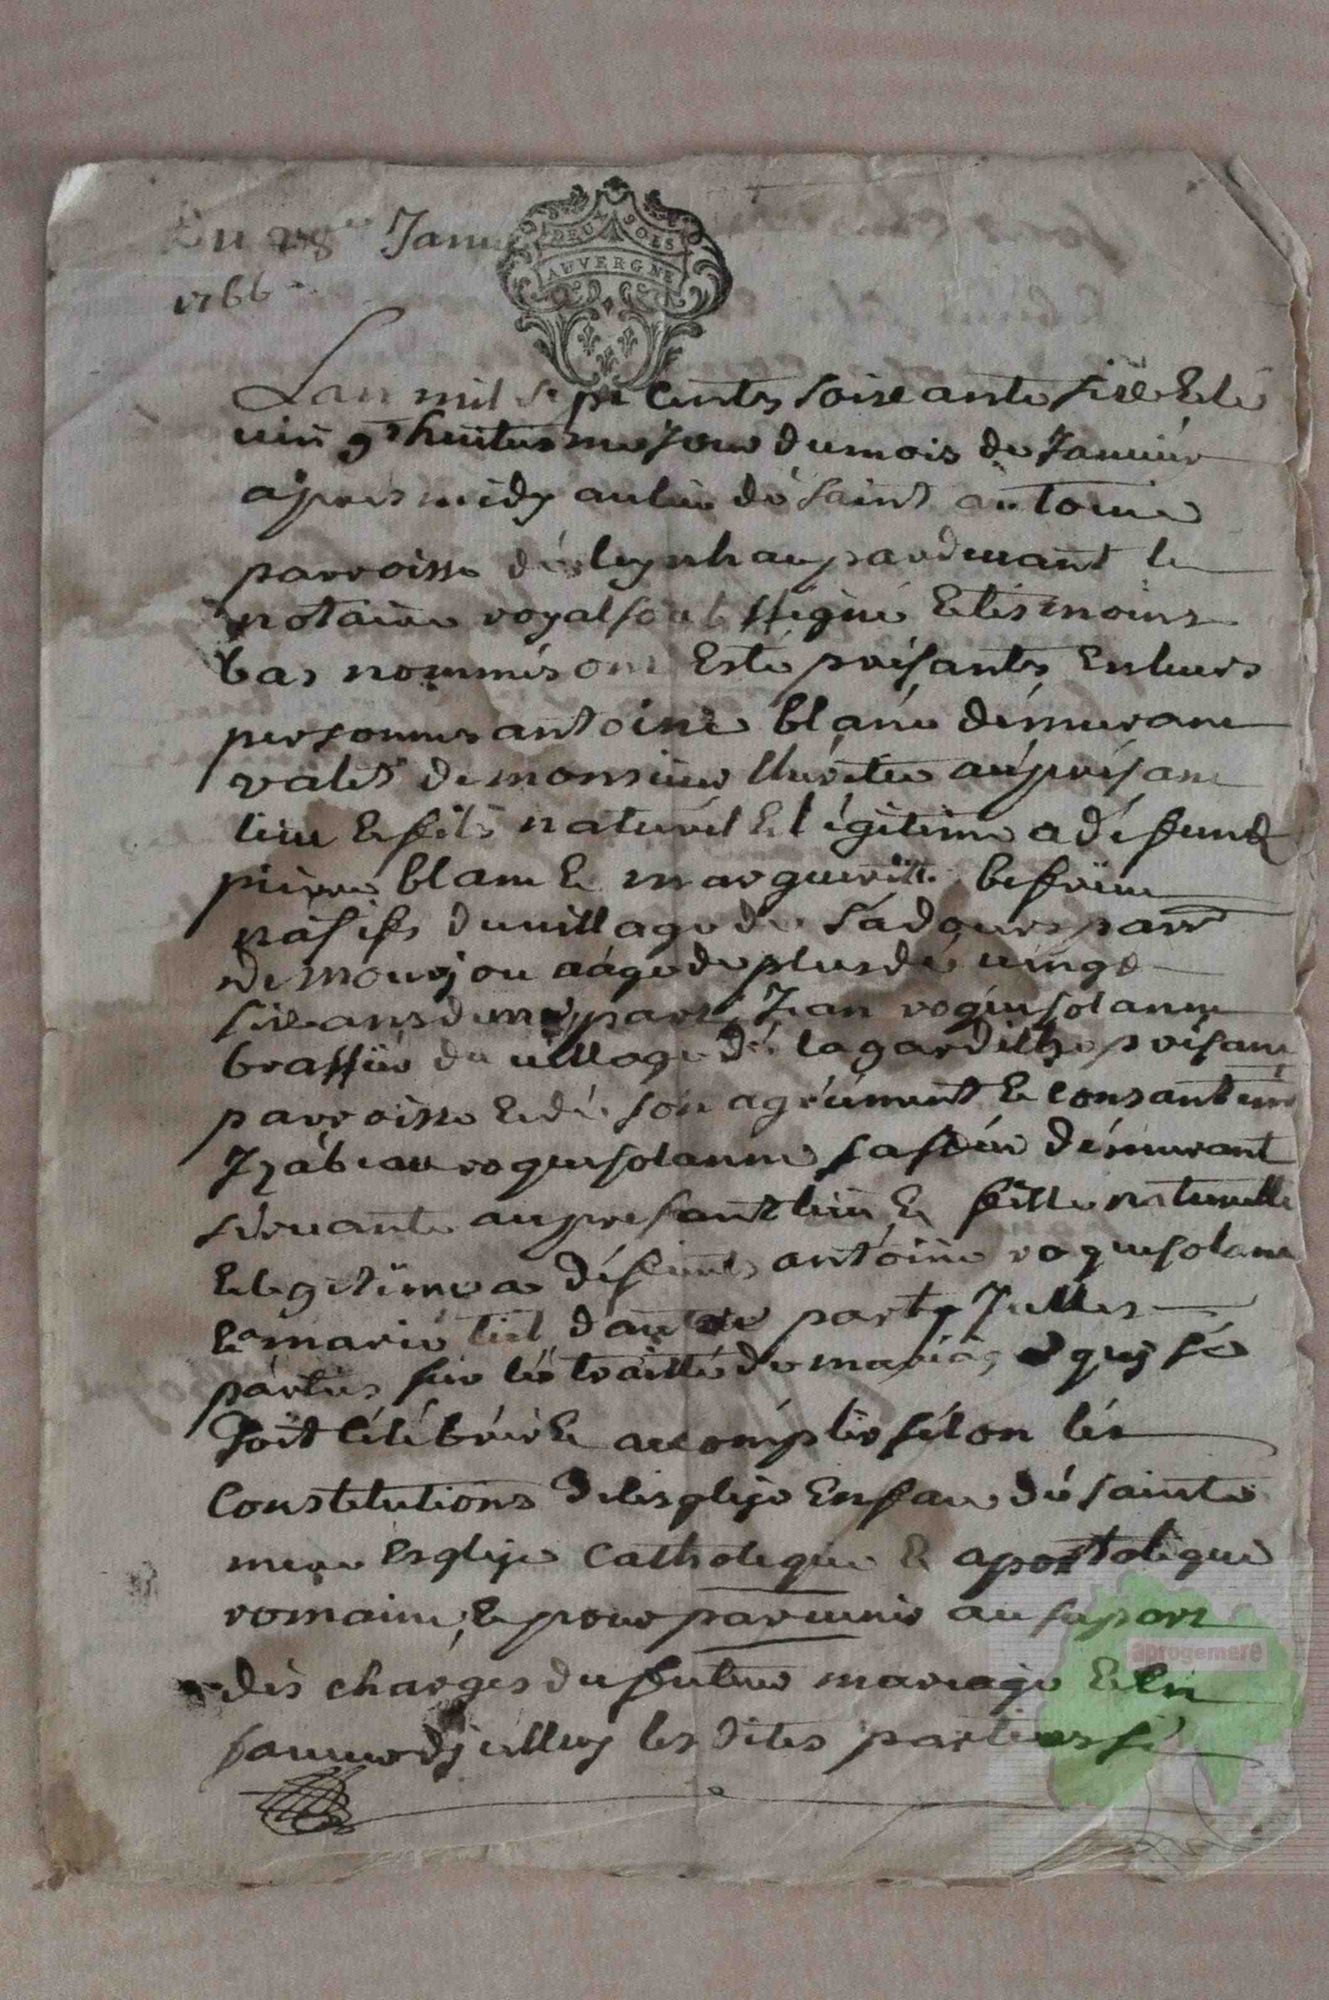 Du 28e Janv
1766
DEUX SOLS
AUVERGNE
Lan mil sept cents soixante six Et le
vin gt huitiesme Jour du mois de Janvier
apres midy au lieu dé saint antoine
parroisse dé pardevant le
notaire royal soubssigné Et tesmoins
bas nommés ont Esté présants En leurs
personnes antoine blanc démurant
valet de monsieur au présant
lieu Et fils naturél Et légitime a défund
pierre blanc Et margueritte
natifs du village de parr
de mourjou aagé de plus dé vingt
six ans dune part, Jean roquesolanne
brassier du village dé lagardelhe présant
parroisse Et dé son agréément Et consantemt
Izábeau roquesolanne sa séur démurant
servante au presant lieu Et fille naturelle
Et legitime a défunts antoine roquesolane
Et marie dautre part, Jelles
parties sur lé traitté de mariage quy sé
soit célébrér Et accomplir sélon lés
Constitutions de lesglize En face dé sainte
mere Esglize Catholique Et apostolique
romaine, Et pour parvenir au suport
dés charges du futeur mariage Et En
faveur dj celluy les dites parties sé
aprogemere